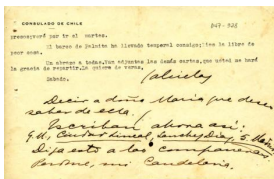 CONSULADO DE CHILE
preocupará por tr el martes.
El barco de Palmita ha llevado temporal consigo; tea la libre de
peor cosa.
Un abrazo a todas. Van adjuntas las demás cartas, que usted me hará
la gracia de repartir. La quiere de veras,
Sabado.
Gabriela
Decir a doña María que deseo
saber de ella.
Escriban ahora así:
G. M. Ciudad Lineal, Sanchez Diaz, 5. Madrid
Diga esto a las compañeras
Perdone, mi Candelaria.